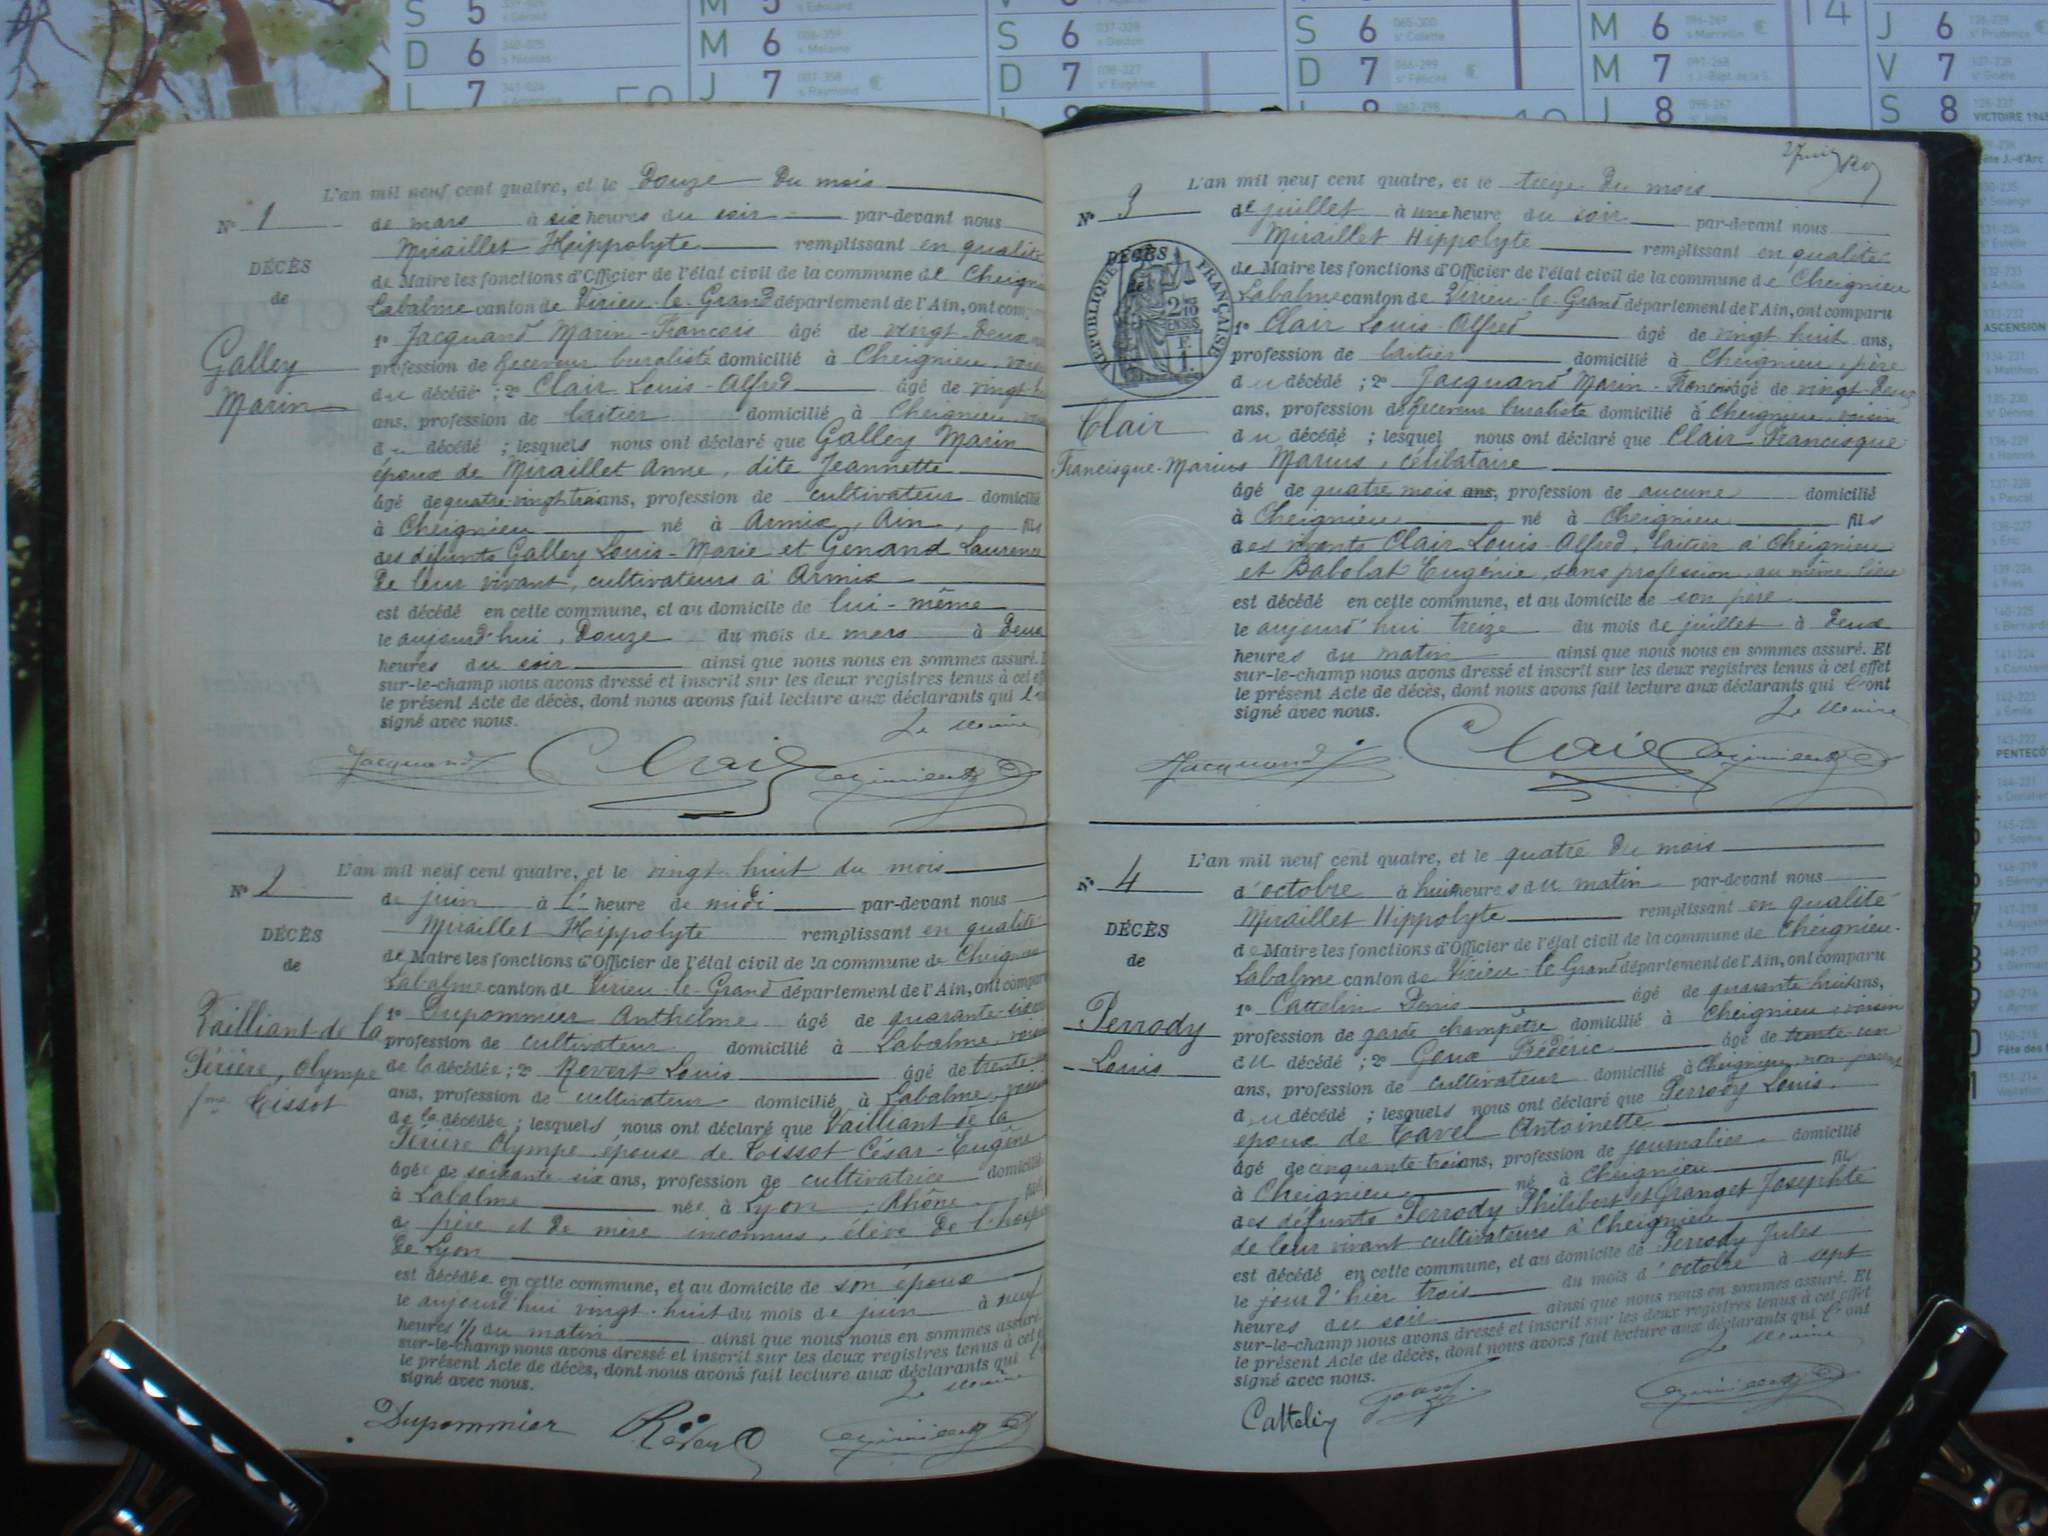 S 5
D 6 340-025 s Nicolas
L 7 341-024
M 5 s Edouard
M 6 006-359 s Melaine
J 7 007-358 s Raymond
S 6 037-328 s Gaston
D 7 038-327 s Eugénie
S 6 065-300 ste Colette
D 7 066-299 ste Félicité
M 6 096-269 s Marcellin
M 7 097-268 s J.-Bapt. de la S.
J 8 098-267 s Julie
14
J 6 126-239 ste Prudence
V 7 127-238 ste Gisèle
S 8 128-237 VICTOIRE 1945
L'an mil neuf cent quatre, et le Douze Du mois
N° 1 de mars à six heures du soir par-devant nous
Miraillet Hippolyte remplissant en qualité
DÉCÈS de Maire les fonctions d'Officier de l'état civil de la commune de Cheignieu
de Labalme canton de Virieu-le-Grand département de l'Ain, ont comp
1° Jacquand Marin-François âgé de vingt Deux
Galley profession de Receveur buraliste domicilié à Cheignieu, voisin
du décédé ; 2° Clair Louis-Alfred âgé de vingt
Marin ans, profession de laitier domicilié à Cheignieu,
du décédé ; lesquels nous ont déclaré que Galley Marin
époux de Miraillet Anne, dite Jeannette
âgé de quatre-vingt trois ans, profession de cultivateur domicilié
à Cheignieu né à Armix, Ain, fils
des défunts Galley Louis-Marie et Genand Laurence
De leur vivant, cultivateurs à Armix
est décédé en cette commune, et au domicile de lui-même
le aujourd'hui, Douze du mois de mars à Deux
heures du soir ainsi que nous nous en sommes assuré.
sur-le-champ nous avons dressé et inscrit sur les deux registres tenus à cet
le présent Acte de décès, dont nous avons fait lecture aux déclarants qui
signé avec nous. Le Maire
Jacquand Clair
L'an mil neuf cent quatre, et le vingt-huit du mois
N° 2 de juin à l' heure de midi par-devant nous
Miraillet Hippolyte remplissant en qualité
DÉCÈS de Maire les fonctions d'Officier de l'état civil de la commune de Cheignieu
de Labalme canton de Virieu-le-Grand département de l'Ain, ont compar
1° Dupommier Anthelme âgé de quarante-six
Vailliant de la profession de cultivateur domicilié à Labalme, voisin
Périère, Olympe de la décédée ; 2° Revert Louis âgé de trente
fme Tissot ans, profession de cultivateur domicilié à Labalme, voisin
de la décédée ; lesquels nous ont déclaré que Vailliant de la
Périère Olympe, épouse de Tissot César-Eugène
âgée de soixante six ans, profession de cultivatrice domicilié
à Labalme née à Lyon, Rhône
de père et de mère inconnus, élève de l'hosp
De Lyon
est décédée en cette commune, et au domicile de son époux
le aujourd'hui vingt-huit du mois de juin à neuf
heures 1/2 du matin ainsi que nous nous en sommes assuré.
sur-le-champ nous avons dressé et inscrit sur les deux registres tenus à cet
le présent Acte de décès, dont nous avons fait lecture aux déclarants qui
signé avec nous. Le Maire
Dupommier Revert
L'an mil neuf cent quatre, et le treize Du mois
N° 3 de juillet à une heure du soir par-devant nous
Miraillet Hippolyte remplissant en qualité
DÉCÈS de Maire les fonctions d'Officier de l'état civil de la commune de Cheignieu
RÉPUBLIQUE FRANÇAISE
Labalme canton de Virieu-le-Grand département de l'Ain, ont comparu
1° Clair Louis-Alfred âgé de vingt huit ans,
profession de laitier domicilié à Cheignieu, père
du décédé ; 2° Jacquand Marin-François âgé de vingt-Deux
ans, profession de Receveur buraliste domicilié à Cheignieu, voisin
Clair du décédé ; lesquel nous ont déclaré que Clair Francisque
Francisque-Marius Marius, célibataire
âgé de quatre mois ans, profession de aucune domicilié
à Cheignieu né à Cheignieu fils
des vivants Clair Louis-Alfred, laitier à Cheignieu
et Babolat Eugénie, sans profession, au même lieu
est décédé en cette commune, et au domicile de son père
le aujourd'hui treize du mois de juillet à Deux
heures du matin ainsi que nous nous en sommes assuré. Et
sur-le-champ nous avons dressé et inscrit sur les deux registres tenus à cet effet
le présent Acte de décès, dont nous avons fait lecture aux déclarants qui l'ont
signé avec nous. Le Maire
Jacquand Clair
L'an mil neuf cent quatre, et le quatre Du mois
N° 4 d'octobre à huit heures du matin par-devant nous
Miraillet Hippolyte remplissant en qualité
DÉCÈS de Maire les fonctions d'Officier de l'état civil de la commune de Cheignieu-
de Labalme canton de Virieu-le-Grand département de l'Ain, ont comparu
1° Cattelin Denis âgé de quarante-huit ans,
Perrody profession de garde champêtre domicilié à Cheignieu, voisin
du décédé ; 2° Goux Frédéric âgé de trente-un
Louis ans, profession de cultivateur domicilié à Cheignieu, non parent
du décédé ; lesquels nous ont déclaré que Perrody Louis,
époux de Tavel Antoinette
âgé de cinquante-trois ans, profession de journalier domicilié
à Cheignieu né à Cheignieu fils
des défunts Perrody Philibert et Granget Josephte
de leur vivant cultivateurs à Cheignieu
est décédé en cette commune, et au domicile de Perrody Jules
le jour d'hier trois du mois d'octobre à sept
heures du soir ainsi que nous nous en sommes assuré. Et
sur-le-champ nous avons dressé et inscrit sur les deux registres tenus à cet effet
le présent Acte de décès, dont nous avons fait lecture aux déclarants qui l'ont
signé avec nous. Le Maire
Cattelin Goux